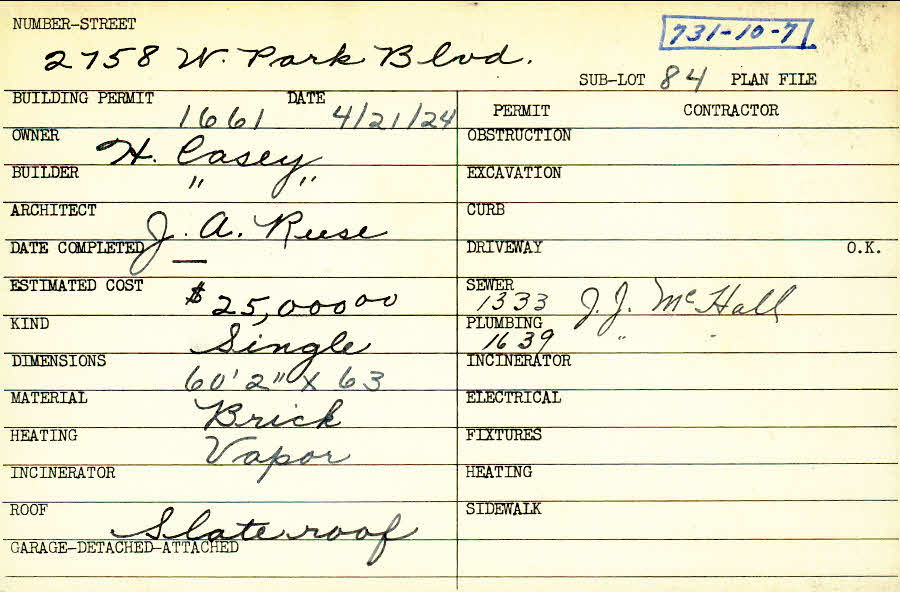 NUMBER-STREET
731-10-7
2758 W. Park Blvd.
SUB-LOT 84 PLAN FILE
BUILDING PERMIT 1661 DATE 4/21/24
PERMIT CONTRACTOR
OWNER H. Casey
OBSTRUCTION
BUILDER " "
EXCAVATION
ARCHITECT J. A. Reese
CURB
DATE COMPLETED —
DRIVEWAY O.K.
ESTIMATED COST $25,000 00
SEWER 1333 J. J. McHall
KIND Single
PLUMBING 1639 " "
DIMENSIONS 60'2" X 63
INCINERATOR
MATERIAL Brick
ELECTRICAL
HEATING Vapor
FIXTURES
INCINERATOR
HEATING
ROOF Slate roof
SIDEWALK
GARAGE-DETACHED-ATTACHED